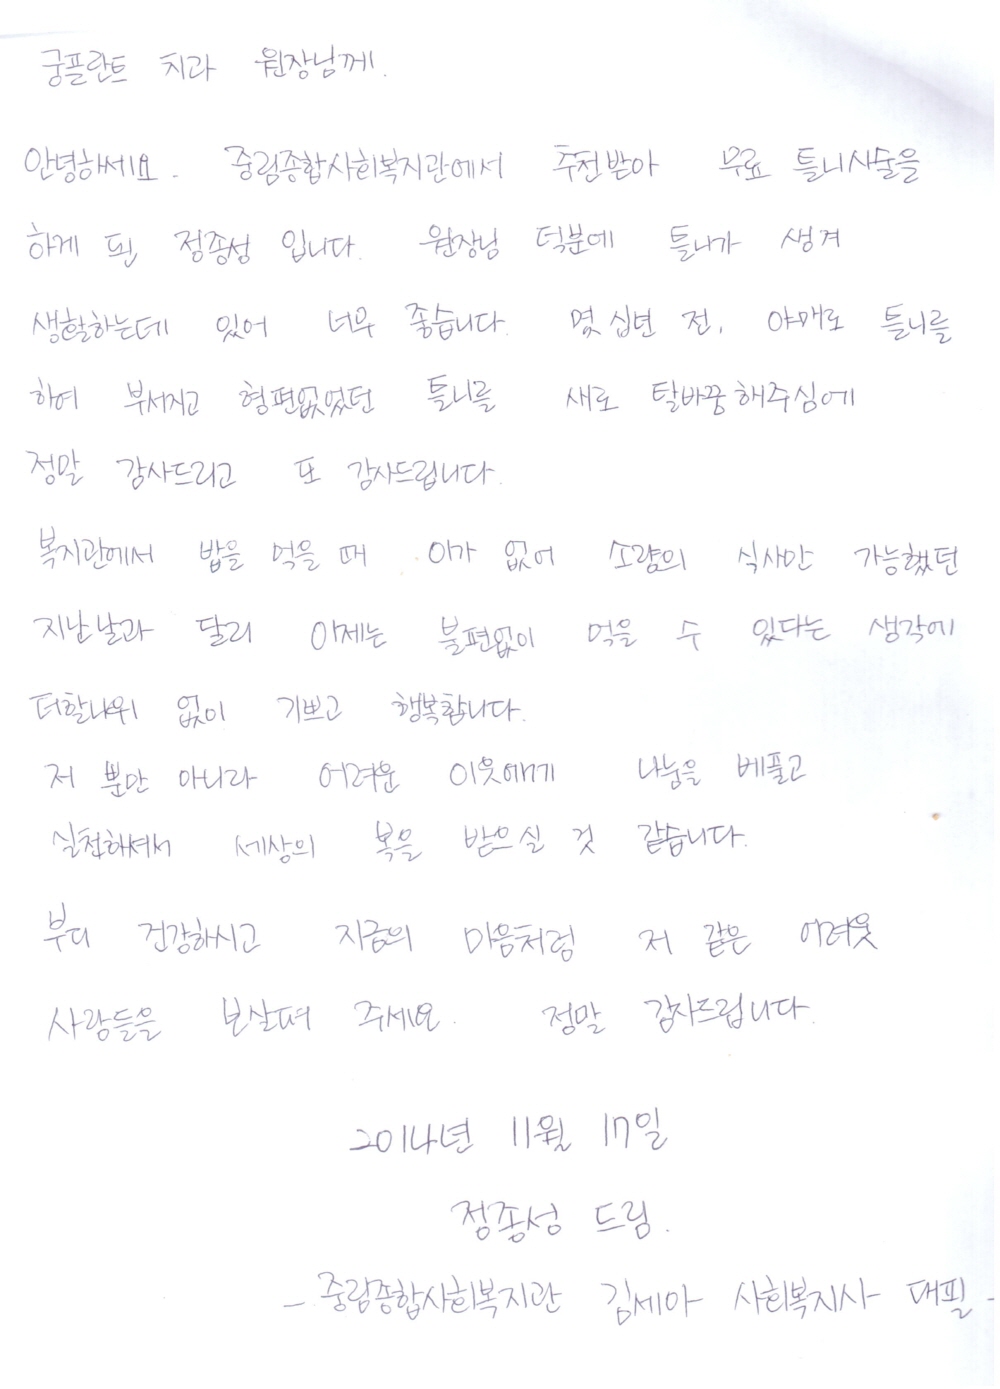 궁플란트 치과 원장님께.
안녕하세요. 중림종합사회복지관에서 추천받아 무료 틀니시술을
하게 된 정종성 입니다. 원장님 덕분에 틀니가 생겨
생활하는데 있어 너무 좋습니다. 몇 십년 전, 야매로 틀니를
하여 부서지고 형편없었던 틀니를 새로 탈바꿈해주심에
정말 감사드리고 또 감사드립니다.
복지관에서 밥을 먹을 때 이가 없어 소량의 식사만 가능했던
지난날과 달리 이제는 불편없이 먹을 수 있다는 생각에
더할나위 없이 기쁘고 행복합니다.
저 뿐만 아니라 어려운 이웃에게 나눔을 베풀고
실천하셔서 세상의 복을 받으실 것 같습니다.
부디 건강하시고 지금의 마음처럼 저 같은 어려운
사람들을 보살펴 주세요. 정말 감사드립니다.
2014년 11월 17일
정종성 드림.
- 중림종합사회복지관 김세아 사회복지사 대필 -